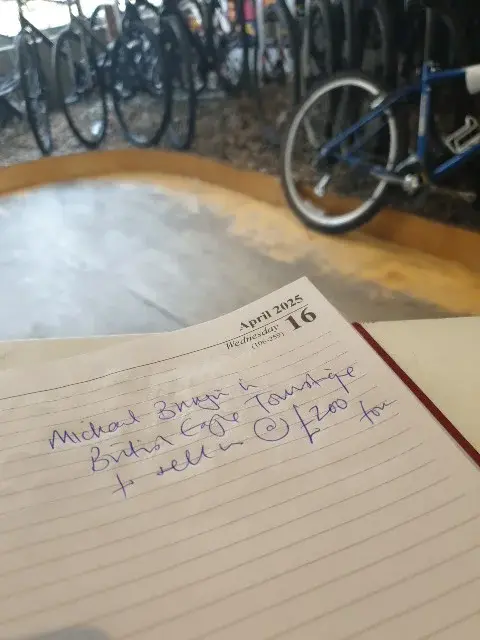 April 2025
Wednesday 16
(106-259)
Michael in
British Eagle Touristique
to sell @ £200 for